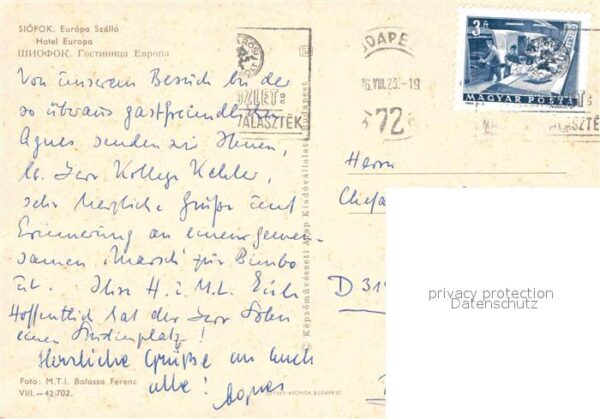 SIÓFOK. Európa Szálló
Hotel Europa
ШИОФОК. Гостиница Европа
Von unserem Besuch bei der
so überaus gastfreundlichen
Agnes senden wir Ihnen,
lb. Herr Kollege
sehr herzliche Grüße und
Erinnerung an einen gemein-
samen "Marsch" zur Bimbo
Ihre H. i. M.L.
Hoffentlich hat der Herr Sohn
einen Studienplatz!
Herzliche Grüße an Euch
alle! Agnes
Foto: M.T.I. Balassa Ferenc
VIII.—42/702.
© Képzőművészeti Alap Kiadóvállalata, Budapest
OFFSET-ATHENEUM BUDAPEST
ÜZLET:
VÁLASZTÉK
BUDAPE
76.VIII.23.-19
72
3 Ft
MAGYAR POSTA
Herrn
D
privacy protection
Datenschutz